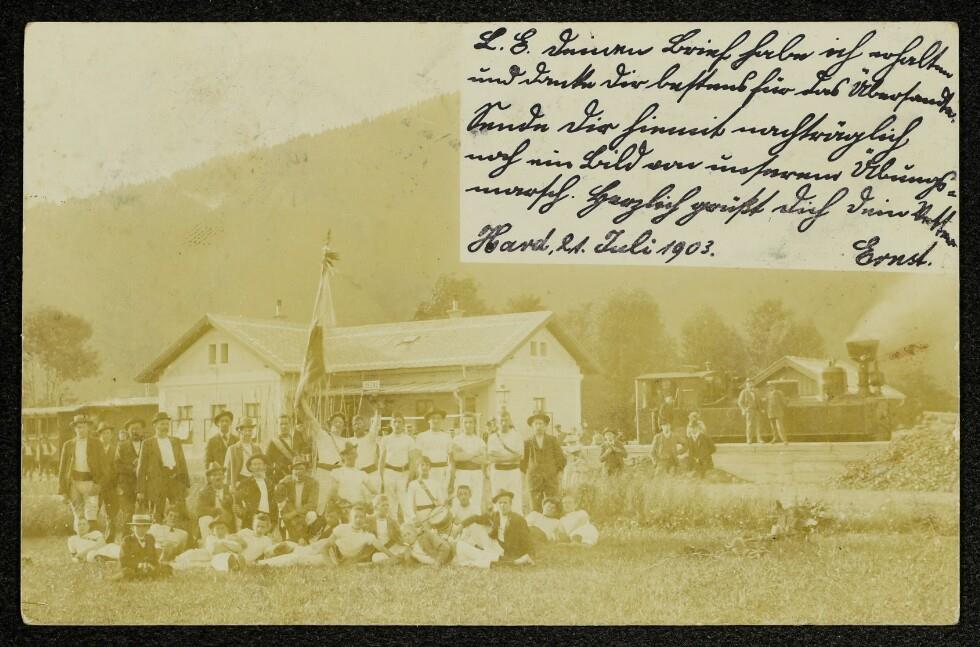 L. E. Deinen Brief habe ich erhalten
und danke Dir bestens für das Übersandte.
Sende Dir hiemit nachträglich
noch ein Bild von unserem Übungs-
marsch. Herzlich grüßt Dich Dein Vetter
Hard, 21. Juli 1903. Ernst.